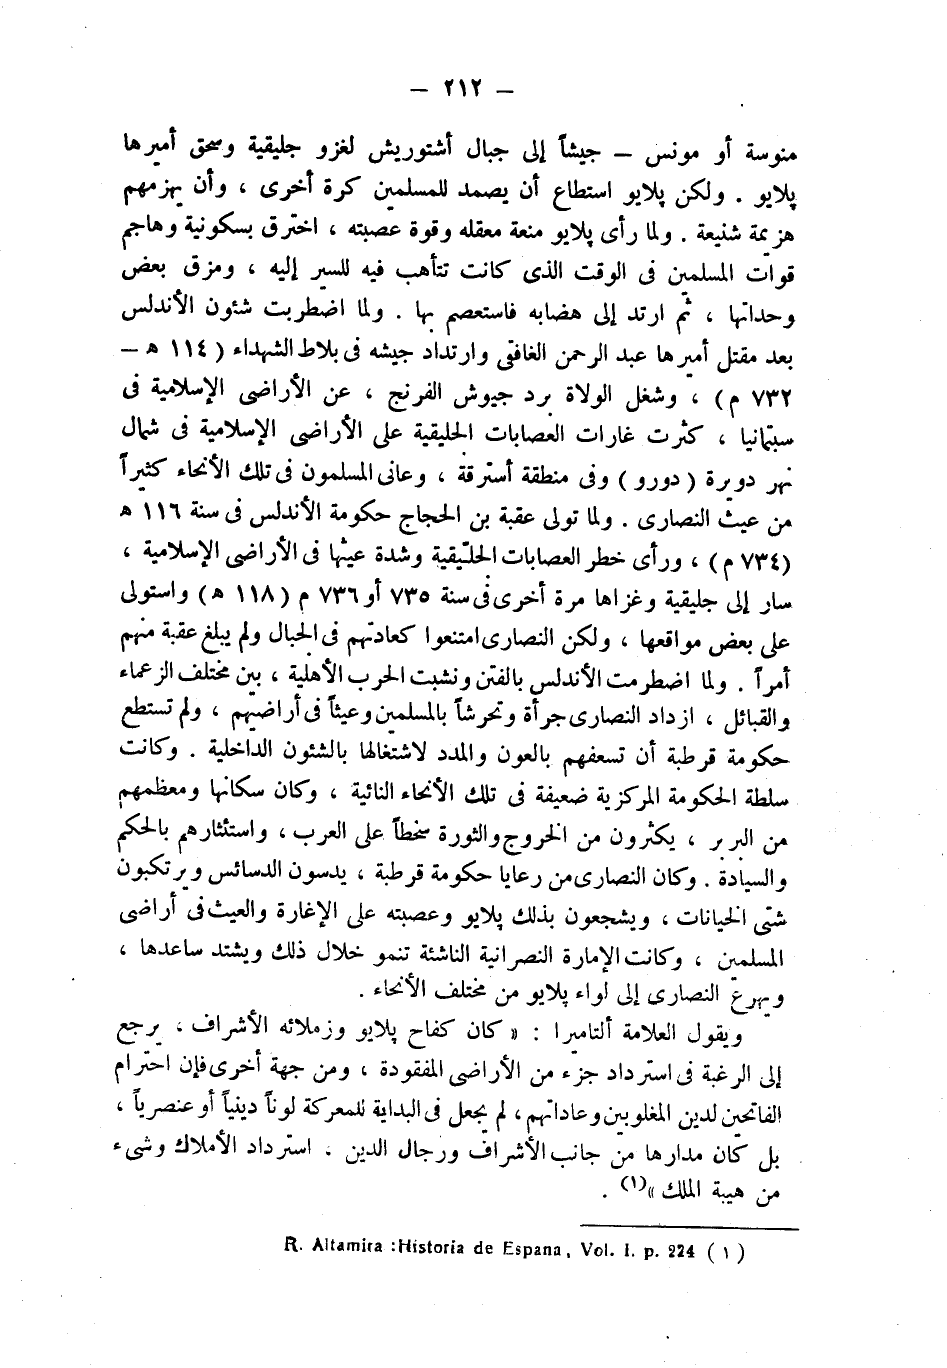 — ٢١٢ —
منوسة أو مونس — جيشاً إلى جبال أشتوريش لغزو جليقية وسحق أميرها
پلايو . ولكن پلايو استطاع أن يصمد للمسلمين كرة أخرى ، وأن يهزمهم
هزيمة شنيعة . ولما رأى پلايو منعة معقله وقوة عصبته ، اخترق بسكونية وهاجم
قوات المسلمين فى الوقت الذى كانت تتأهب فيه للسير إليه ، ومزق بعض
وحداتها ، ثم ارتد إلى هضابه فاستعصم بها . ولما اضطربت شئون الأندلس
بعد مقتل أميرها عبد الرحمن الغافقى وارتداد جيشه فى بلاط الشهداء ( ١١٤ ھ —
٧٣٢ م ) ، وشغل الولاة برد جيوش الفرنج ، عن الأراضى الإسلامية فى
سبتمانيا ، كثرت غارات العصابات الجليقية على الأراضى الإسلامية فى شمال
نهر دويرة ( دورو ) وفى منطقة أسترقة ، وعانى المسلمون فى تلك الأنحاء كثيراً
من عيث النصارى . ولما تولى عقبة بن الحجاج حكومة الأندلس فى سنة ١١٦ ھ
(٧٣٤ م ) ، ورأى خطر العصابات الجلّيقية وشدة عيثها فى الأراضى الإسلامية ،
سار إلى جليقية وغزاها مرة أخرى فى سنة ٧٣٥ أو ٧٣٦ م ( ١١٨ ھ ) واستولى
على بعض مواقعها ، ولكن النصارى امتنعوا كعادتهم فى الجبال ولم يبلغ عقبة منهم
أمراً . ولما اضطرمت الأندلس بالفتن ونشبت الحرب الأهلية ، بين مختلف الزعماء
والقبائل ، ازداد النصارى جرأة وتحرشاً بالمسلمين وعيثاً فى أراضيهم ، ولم تستطع
حكومة قرطبة أن تسعفهم بالعون والمدد لاشتغالها بالشئون الداخلية . وكانت
سلطة الحكومة المركزية ضعيفة فى تلك الأنحاء النائية ، وكان سكانها ومعظمهم
من البربر ، يكثرون من الخروج والثورة سخطاً على العرب ، واستئثارهم بالحكم
والسيادة . وكان النصارى من رعايا حكومة قرطبة ، يدسون الدسائس ويرتكبون
شتى الخيانات ، ويشجعون بذلك پلايو وعصبته على الإغارة والعيث فى أراضى
المسلمين ، وكانت الإمارة النصرانية الناشئة تنمو خلال ذلك ويشتد ساعدها ،
ويهرع النصارى إلى لواء پلايو من مختلف الأنحاء .
ويقول العلامة ألتاميرا : « كان كفاح پلايو وزملائه الأشراف ، يرجع
إلى الرغبة فى استرداد جزء من الأراضى المفقودة ، ومن جهة أخرى فإن احترام
الفاتحين لدين المغلوبين وعاداتهم ، لم يجعل فى البداية للمعركة لوناً دينياً أو عنصرياً ،
بل كان مدارها من جانب الأشراف ورجال الدين ، استرداد الأملاك وشىء
من هيبة الملك »(١) .
R. Altamira :Historia de Espana, Vol. I. p. 224 ( ١ )